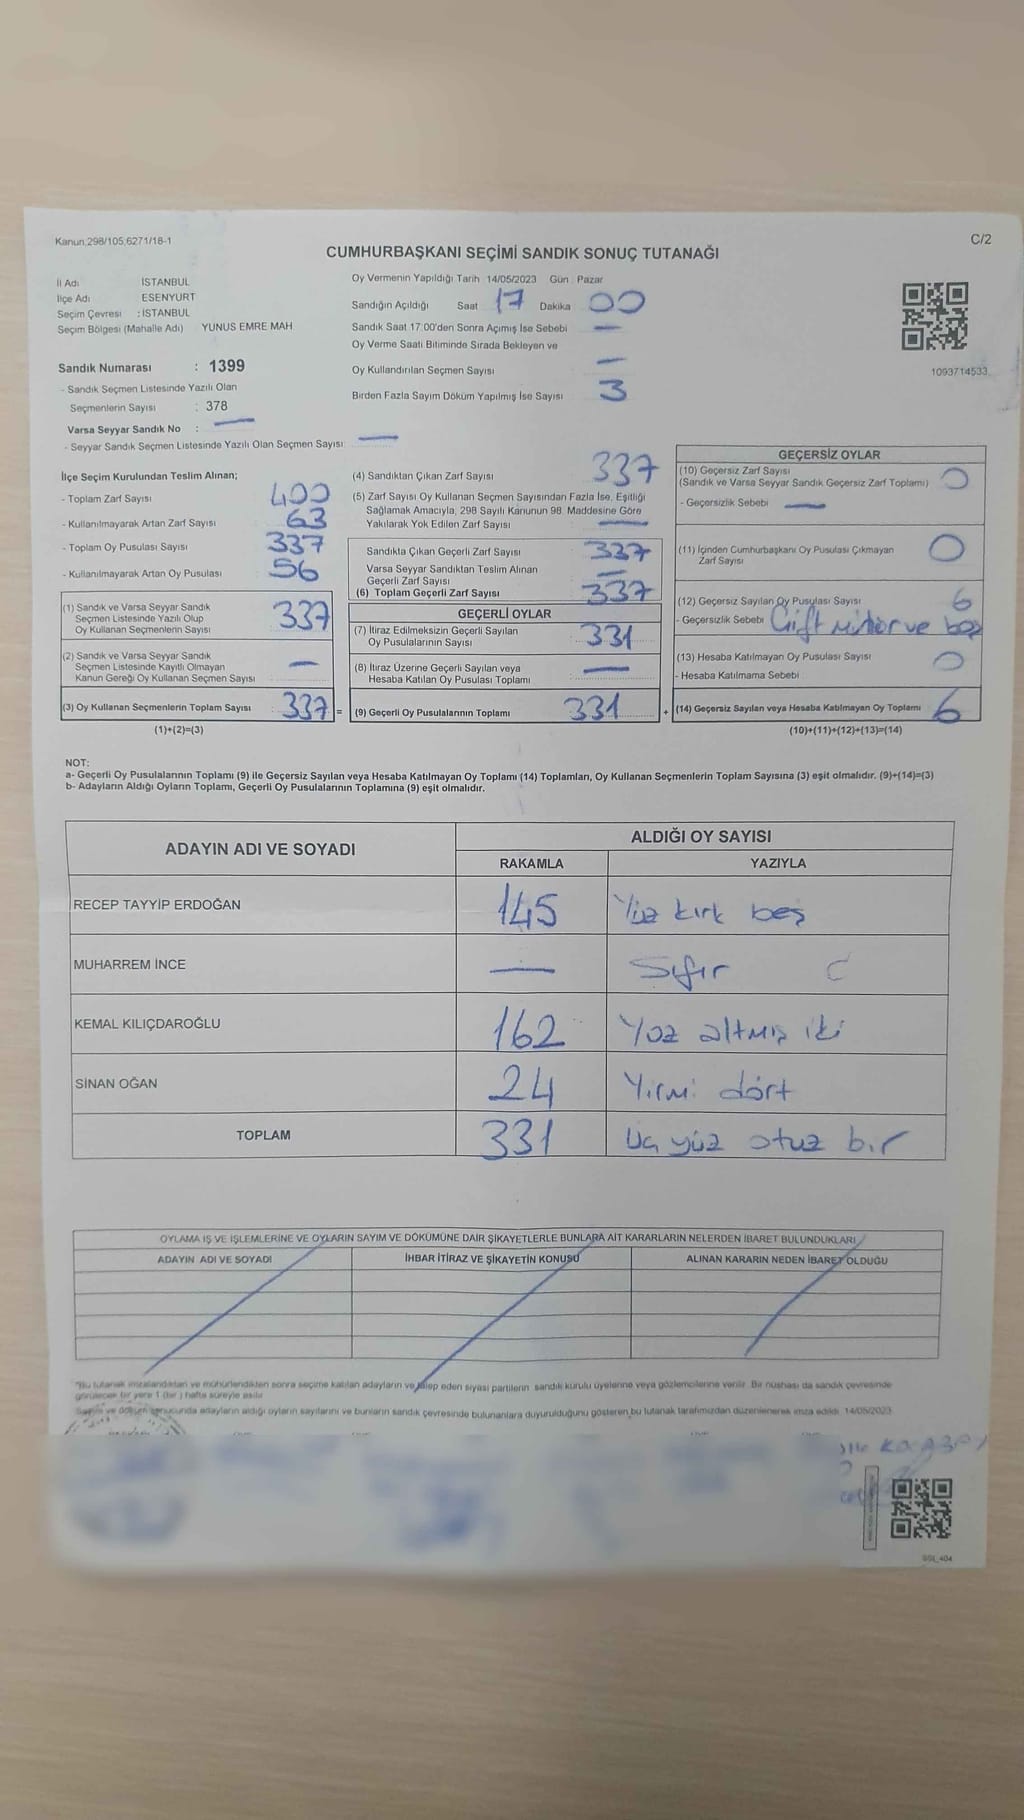 Kanun,298/105,6271/18-1
C/2
CUMHURBAŞKANI SEÇİMİ SANDIK SONUÇ TUTANAĞI
İl Adı İSTANBUL
İlçe Adı ESENYURT
Seçim Çevresi : İSTANBUL
Seçim Bölgesi (Mahalle Adı) YUNUS EMRE MAH
Sandık Numarası : 1399
- Sandık Seçmen Listesinde Yazılı Olan
Seçmenlerin Sayısı : 378
Varsa Seyyar Sandık No : —
- Seyyar Sandık Seçmen Listesinde Yazılı Olan Seçmen Sayısı: —
Oy Vermenin Yapıldığı Tarih 14/05/2023 Gün : Pazar
Sandığın Açıldığı Saat 17 Dakika 00
Sandık Saat 17:00'den Sonra Açımış İse Sebebi —
Oy Verme Saati Bitiminde Sırada Bekleyen ve
Oy Kullandırılan Seçmen Sayısı —
Birden Fazla Sayım Döküm Yapılmış İse Sayısı 3
1093714533
İlçe Seçim Kurulundan Teslim Alınan;
- Toplam Zarf Sayısı 400
- Kullanılmayarak Artan Zarf Sayısı 63
- Toplam Oy Pusulası Sayısı 337
- Kullanılmayarak Artan Oy Pusulası 56
(1) Sandık ve Varsa Seyyar Sandık
Seçmen Listesinde Yazılı Olup
Oy Kullanan Seçmenlerin Sayısı 337
(2) Sandık ve Varsa Seyyar Sandık
Seçmen Listesinde Kayıtlı Olmayan
Kanun Gereği Oy Kullanan Seçmen Sayısı —
(3) Oy Kullanan Seçmenlerin Toplam Sayısı 337 =
(1)+(2)=(3)
(4) Sandıktan Çıkan Zarf Sayısı 337
(5) Zarf Sayısı Oy Kullanan Seçmen Sayısından Fazla İse, Eşitliği
Sağlamak Amacıyla, 298 Sayılı Kanunun 98. Maddesine Göre
Yakılarak Yok Edilen Zarf Sayısı —
Sandıkta Çıkan Geçerli Zarf Sayısı 337
Varsa Seyyar Sandıktan Teslim Alınan
Geçerli Zarf Sayısı —
(6) Toplam Geçerli Zarf Sayısı 337
GEÇERLİ OYLAR
(7) İtiraz Edilmeksizin Geçerli Sayılan
Oy Pusulalarının Sayısı 331
(8) İtiraz Üzerine Geçerli Sayılan veya
Hesaba Katılan Oy Pusulası Toplamı —
(9) Geçerli Oy Pusulalarının Toplamı 331 +
GEÇERSİZ OYLAR
(10) Geçersiz Zarf Sayısı
(Sandık ve Varsa Seyyar Sandık Geçersiz Zarf Toplamı) 0
- Geçersizlik Sebebi —
(11) İçinden Cumhurbaşkanı Oy Pusulası Çıkmayan
Zarf Sayısı 0
(12) Geçersiz Sayılan Oy Pusulası Sayısı 6
- Geçersizlik Sebebi Çift mühür ve boş
(13) Hesaba Katılmayan Oy Pusulası Sayısı 0
- Hesaba Katılmama Sebebi
(14) Geçersiz Sayılan veya Hesaba Katılmayan Oy Toplamı 6
(10)+(11)+(12)+(13)=(14)
NOT:
a- Geçerli Oy Pusulalarının Toplamı (9) ile Geçersiz Sayılan veya Hesaba Katılmayan Oy Toplamı (14) Toplamları, Oy Kullanan Seçmenlerin Toplam Sayısına (3) eşit olmalıdır. (9)+(14)=(3)
b- Adayların Aldığı Oyların Toplamı, Geçerli Oy Pusulalarının Toplamına (9) eşit olmalıdır.
ADAYIN ADI VE SOYADI ALDIĞI OY SAYISI
RAKAMLA YAZIYLA
RECEP TAYYİP ERDOĞAN 145 Yüz kırk beş
MUHARREM İNCE — Sıfır
KEMAL KILIÇDAROĞLU 162 Yüz altmış iki
SİNAN OĞAN 24 Yirmi dört
TOPLAM 331 Üç yüz otuz bir
OYLAMA İŞ VE İŞLEMLERİNE VE OYLARIN SAYIM VE DÖKÜMÜNE DAİR ŞİKAYETLERLE BUNLARA AİT KARARLARIN NELERDEN İBARET BULUNDUKLARI
ADAYIN ADI VE SOYADI İHBAR İTİRAZ VE ŞİKAYETİN KONUSU ALINAN KARARIN NEDEN İBARET OLDUĞU
"Bu tutanak imzalandıktan ve mühürlendikten sonra seçime katılan adayların ve talep eden siyasi partilerin sandık kurulu üyelerine veya gözlemcilerine verilir. Bir nüshası da sandık çevresinde
görülecek bir yere 1 (bir) hafta süreyle asılır
Sayım ve döküm sonucunda adayların aldığı oyların sayılarını ve bunların sandık çevresinde bulunanlara duyurulduğunu gösteren bu tutanak tarafımızdan düzenlenerek imza edildi. 14/05/2023